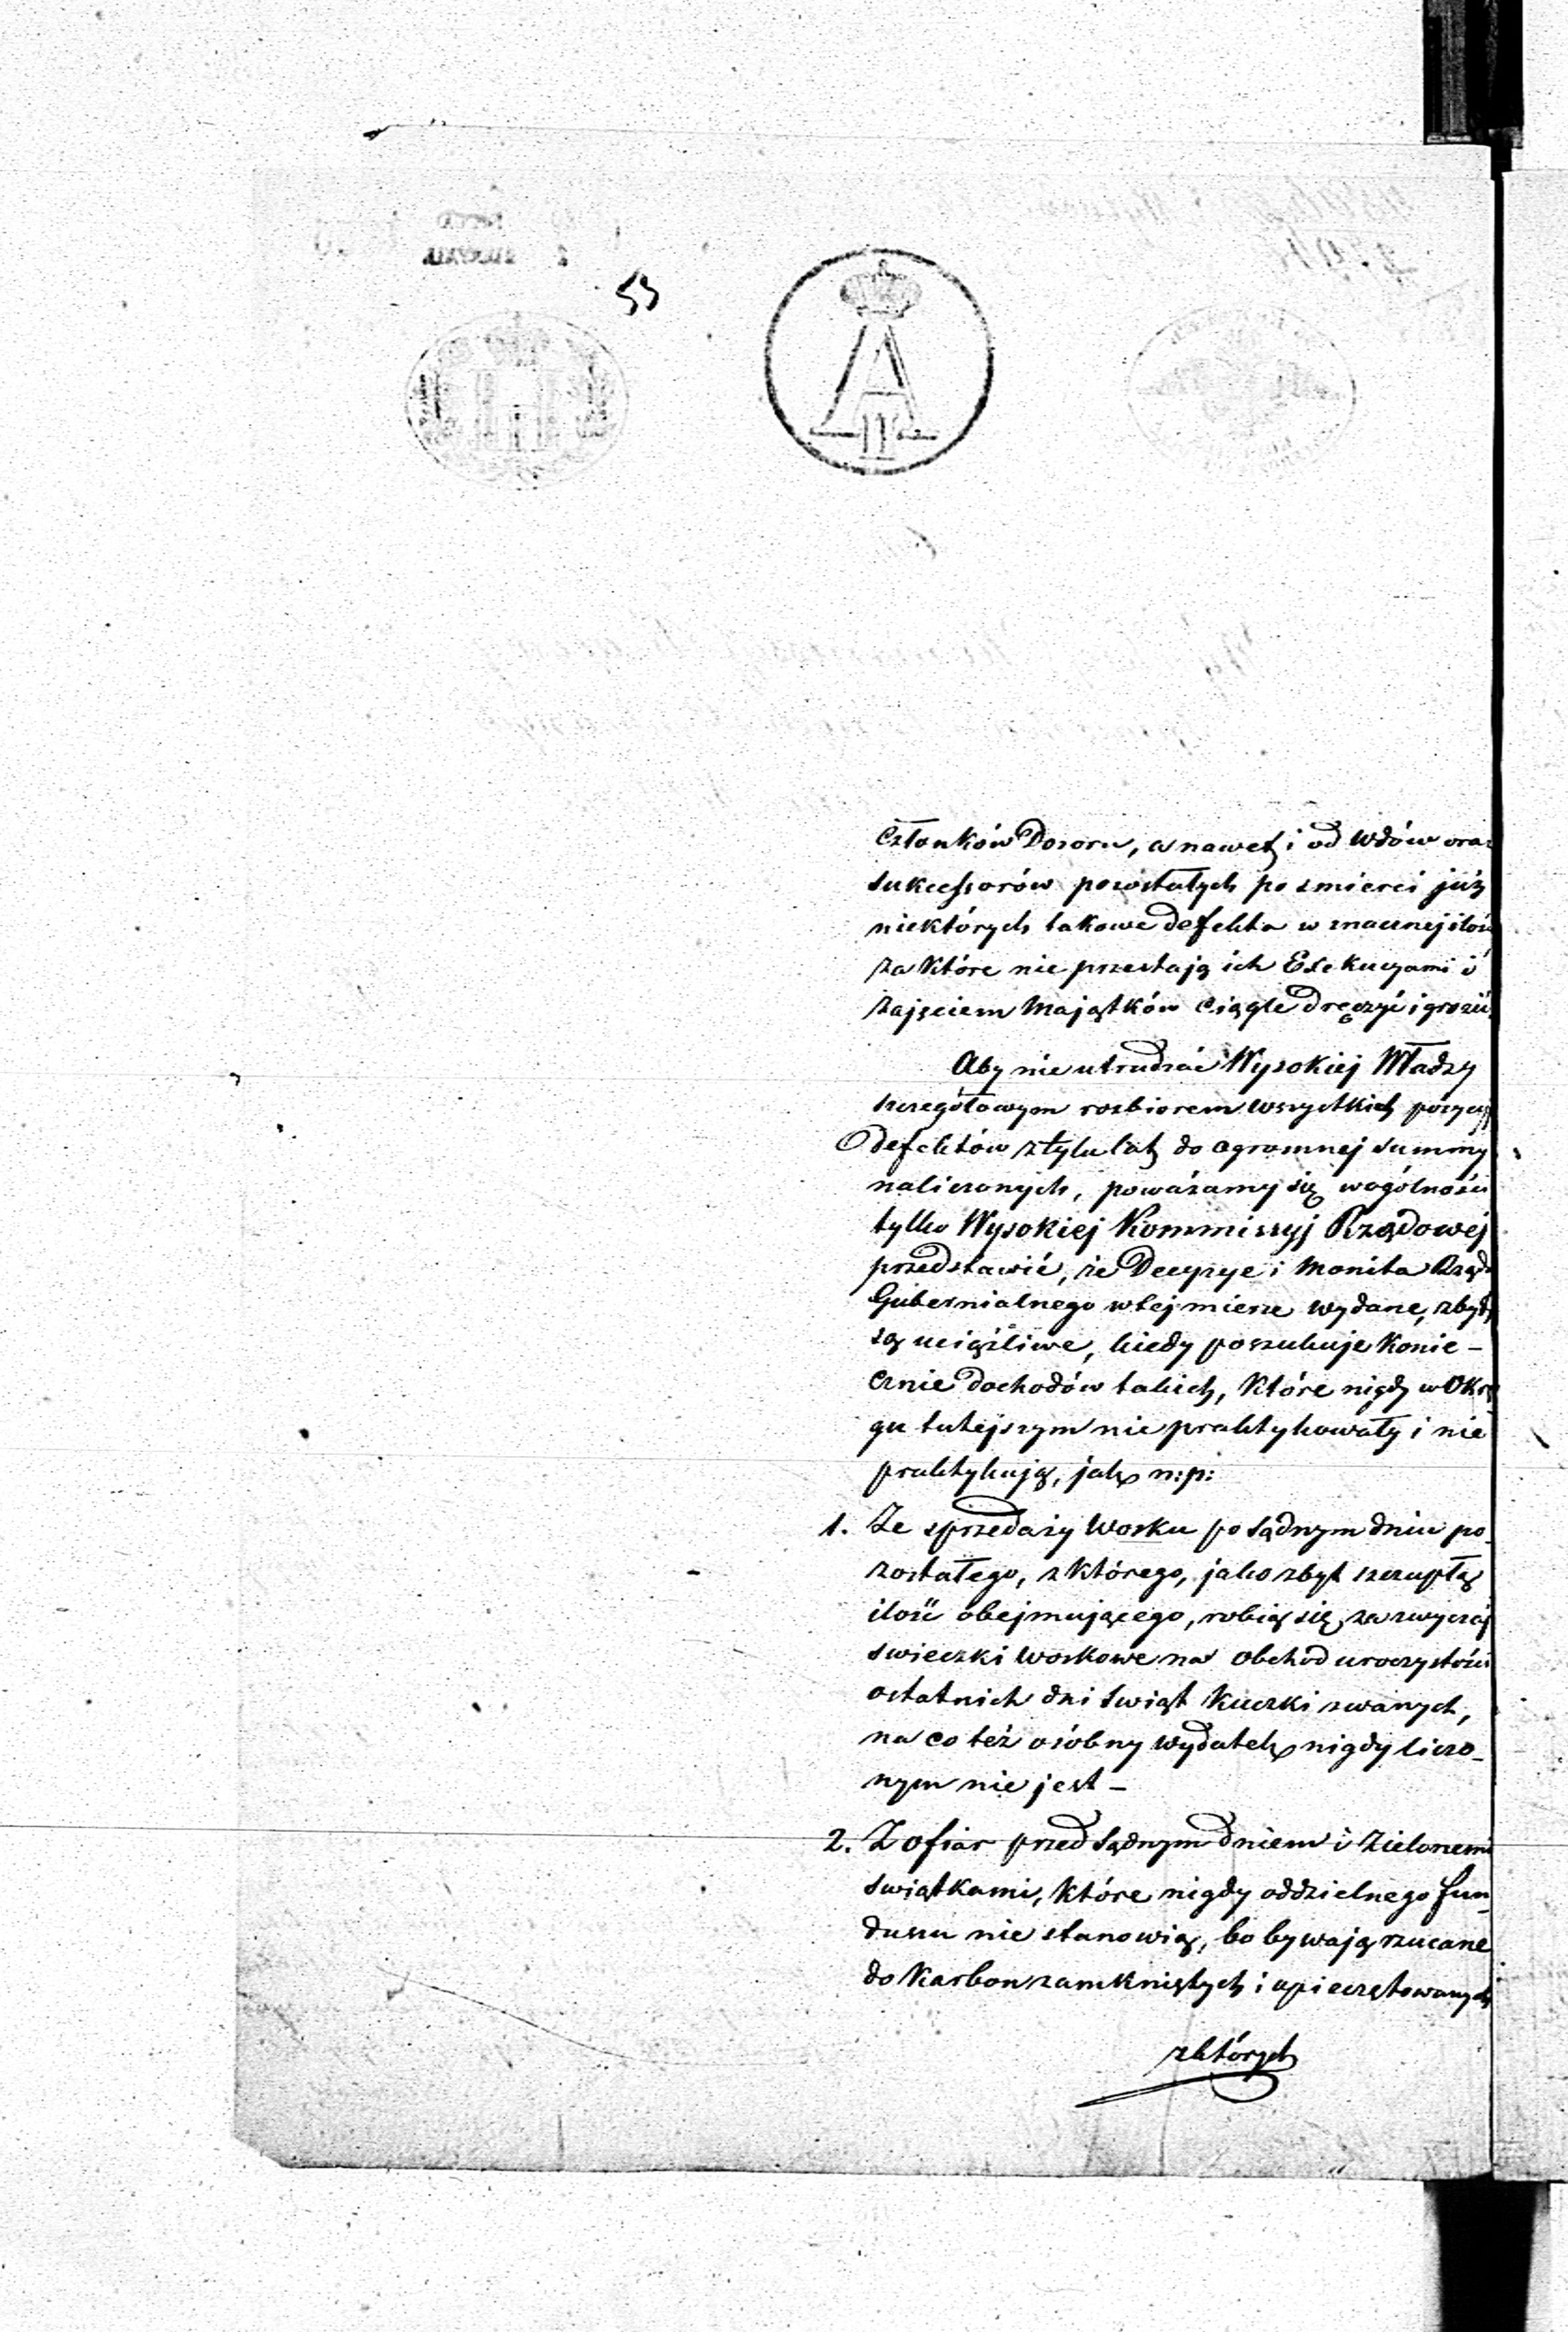 53
A
II
Członków Dozoru, a nawet i od wdów oraz
sukcessorów pozostałych po smierci już
niektórych takowe defekta w znacznej ilości
za które nie przestają ich Exekucyami i
zajęciem Majątków ciągle dręczyć i grozić,
Aby nie utrudzać Wysokiej Władzy
szczegółowym rozbiorem wszystkich pozycyj
defektów z tylu lat do ogromnej summy
naliczonych, poważamy się wogólności
tylko Wysokiej Kommissyj Rządowej
przedstawić, że Decyzye i Monita Rządu
Gubernialnego w tej mierze wydane, zbyt
są uciążliwe, kiedy poszukuje konie-
cznie dochodów takich, które nigdy w Okrę
gu tutejszym nie praktykowały i nie
praktykują, jak n:p:
1. Ze sprzedaży Wosku po sądnym dniu po-
zostałego, z którego, jako zbyt szczupłą
ilość obejmującego, robią się zazwyczaj
swieczki woskowe na obchód uroczystości
ostatnich dni Swiąt Kuczki zwanych,
na co też osóbny wydatek nigdy liczo-
nym nie jest –
2. Z ofiar przed Sądnym dniem i Zielonemi
swiątkami, które nigdy oddzielnego fun-
duszu nie stanowią, bo bywają rzucane
do Karbon zamkniętych i opieczętowanych
z których